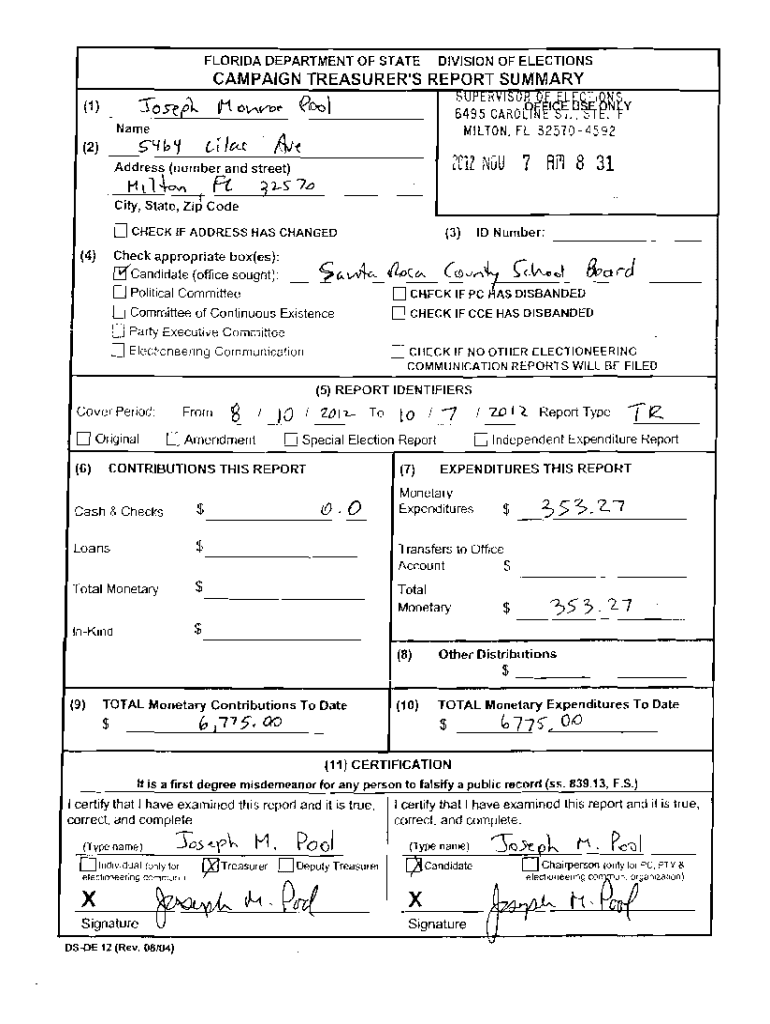 FLORIDA DEPARTMENT OF STATE DIVISION OF ELECTIONS
CAMPAIGN TREASURER'S REPORT SUMMARY
(1) Joseph Monroe Pool
Name
(2) 5464 Lilac Ave
Address (number and street)
Milton, FL 32570
City, State, Zip Code
SUPERVISOR OF ELECTIONS
OFFICE USE ONLY
6495 CAROLINE ST., STE. F
MILTON, FL 32570-4592
2012 NOV 7 AM 8 31
CHECK IF ADDRESS HAS CHANGED (3) ID Number:
(4) Check appropriate box(es):
Candidate (office sought): Santa Rosa County School Board
Political Committee CHECK IF PC HAS DISBANDED
Committee of Continuous Existence CHECK IF CCE HAS DISBANDED
Party Executive Committee
Electioneering Communication CHECK IF NO OTHER ELECTIONEERING
COMMUNICATION REPORTS WILL BE FILED
(5) REPORT IDENTIFIERS
Cover Period: From 8 / 10 / 2012 To 10 / 7 / 2012 Report Type TR
Original Amendment Special Election Report Independent Expenditure Report
(6) CONTRIBUTIONS THIS REPORT
Cash & Checks $ 0.0
Loans $
Total Monetary $
In-Kind $
(7) EXPENDITURES THIS REPORT
Monetary
Expenditures $ 353.27
Transfers to Office
Account $
Total
Monetary $ 353.27
(8) Other Distributions
$
(9) TOTAL Monetary Contributions To Date
$ 6,775.00
(10) TOTAL Monetary Expenditures To Date
$ 6775.00
(11) CERTIFICATION
It is a first degree misdemeanor for any person to falsify a public record (ss. 839.13, F.S.)
I certify that I have examined this report and it is true,
correct, and complete
(Type name) Joseph M. Pool
Individual (only for Treasurer Deputy Treasurer
electioneering commun.)
X Joseph M. Pool
Signature
I certify that I have examined this report and it is true,
correct, and complete.
(Type name) Joseph M. Pool
Candidate Chairperson (only for PC, PTY &
electioneering commun. organization)
X Joseph M. Pool
Signature
DS-DE 12 (Rev. 08/04)